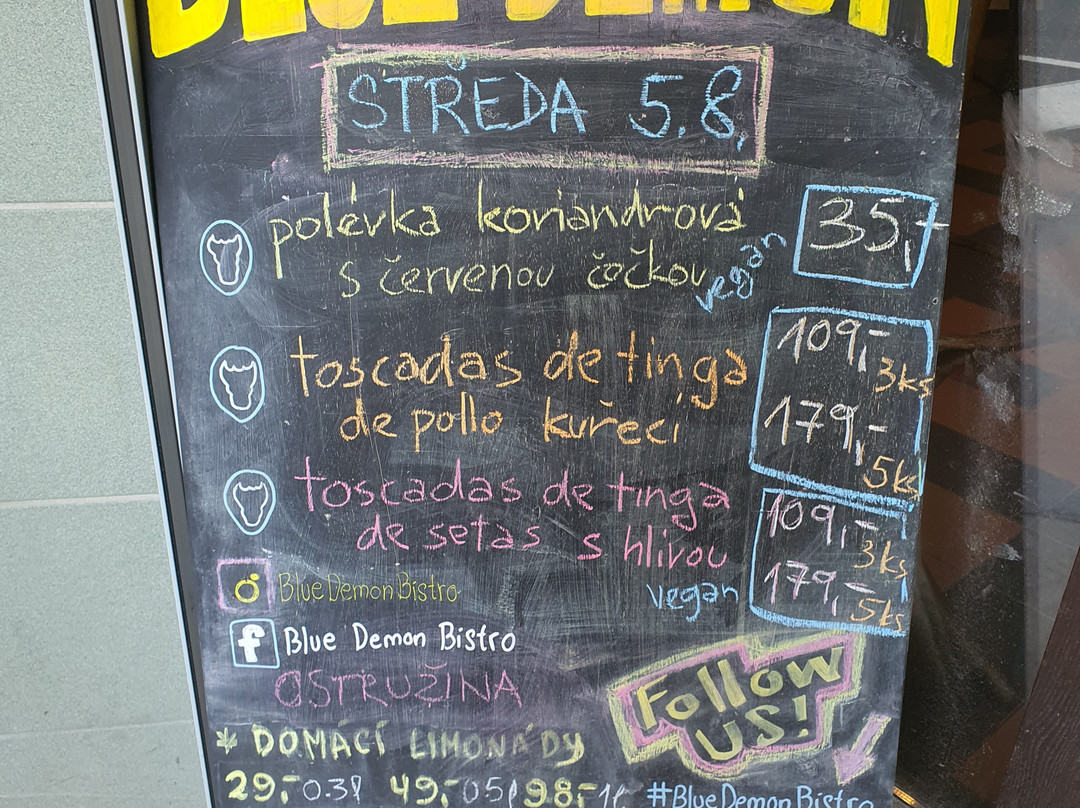 BLUE DEMON
STŘEDA 5.8.
polévka koriandrová 35,-
s červenou čočkou vegan
toscadas de tinga 109,- 3ks
de pollo kuřecí 179,- 5ks
toscadas de tinga 109,- 3ks
de setas s hlivou
vegan 179,- 5ks
BlueDemonBistro
f Blue Demon Bistro
OSTRUŽINA
Follow
US!
* DOMÁCÍ LIMONÁDY
29,- 0.3l 49,- 0.5l 98,- 1l
#BlueDemonBistro